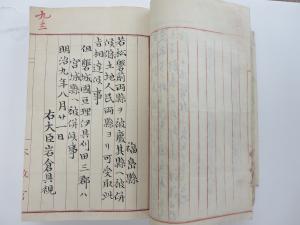 九三
福島縣
若松磐前兩縣ヲ被廢其縣ヘ被併
候條土地人民兩縣ヨリ可受取
旨相達候事
但磐城國亘理伊具刈田三郡ハ
宮城縣ヘ被併候事
明治九年八月廿一日
右大臣岩倉具視